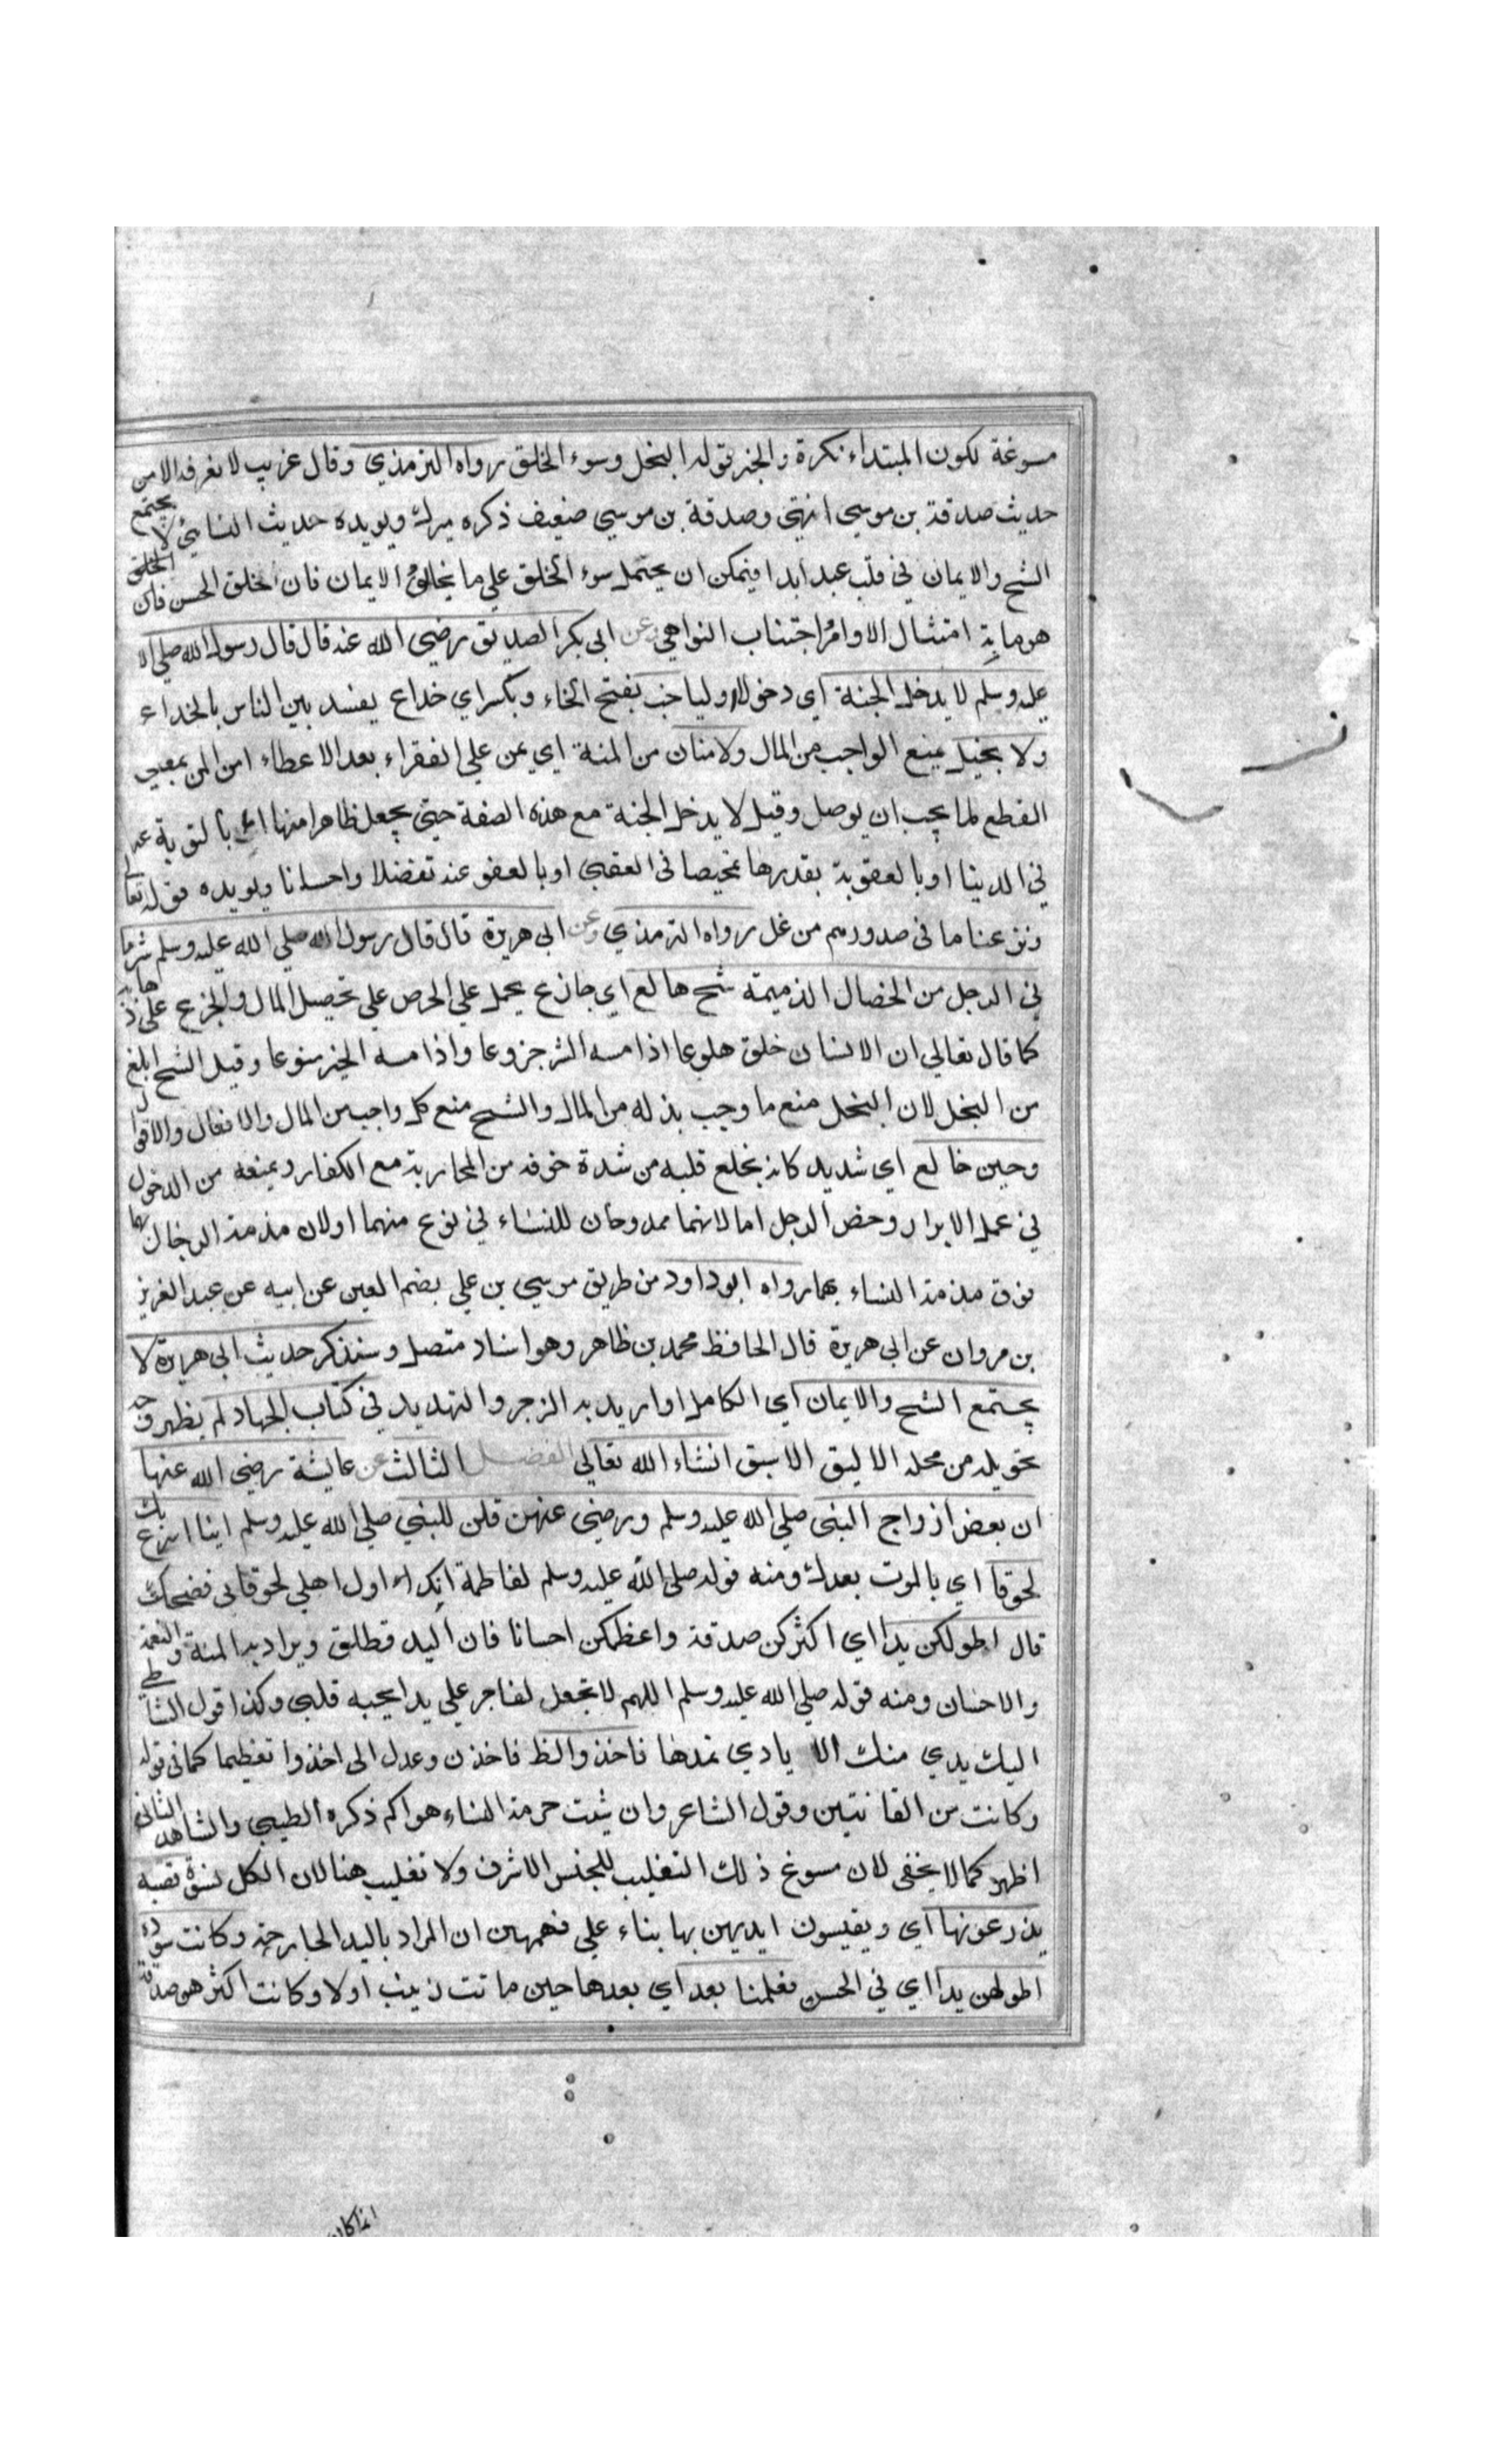 مسوغة لكون المبتداء نكرة والخبر قوله البخل وسوء الخلق رواه الترمذي وقال غريب لا نعرفه الا من
حديث صدقة بن موسي انتهي وصدقة بن موسي ضعيف ذكره ميرك ويويده حديث النسايئ لا يجتمع
الشح والايمان في قلب عبد ابدا فيمكن ان يحتمل سوء الخلق علي ما يخالف الايمان فان الخلق الحسن
هو ما به امتثال الاوامر اجتناب النواهي وعن ابي بكر الصديق رضي الله عنه قال قال رسول الله صلي الله
عليه وسلم لا يدخل الجنة اي دخولا اوليا خب بفتح الخاء وبكسر اي خداع يفسد بين الناس بالخداع
ولا بخيل يمنع الواجب من المال ولا منان من المنة اي يمن علي الفقراء بعد الاعطاء او من المن بمعني
القطع لما يجب ان يوصل وقيل لا يدخل الجنة مع هذه الصفة حتي يجعل ظاهرا منها اي بالتوبة عنه
في الدينا او بالعقوبة بقدرها تمحيصا في العقبي او بالعفو عنه تفضلا واحسانا ويويده قوله تعالي
ونزعنا ما في صدورهم من غل رواه الترمذي وعن ابي هريرة قال قال رسول الله صلي الله عليه وسلم شر ما
في الرجل من الخصال الذميمة شح هالع اي جازع يحمل علي الحرص علي تحصيل المال والجزع علي ذهابه
كما قال تعالي ان الانسان خلق هلوعا اذا مسه الشر جزوعا واذا مسه الخير منوعا وقيل الشح ابلغ
من البخل لان البخل منع ما وجب بذله من المال والشح منع كل واجب من المال والافعال والاقوال
وجبن خالع اي شديد كانه يخلع قلبه من شدة خوفه من المحاربة مع الكفار ويمنعه من الدخول
في عمل الابرار وخص الرجل اما لانهما ممدوحان للنساء في نوع منهما او لان مذمة الرجال بهما
فوق مذمة النساء بهما رواه ابو داود من طريق موسي بن علي بضم العين عن ابيه عن عبد العزيز
بن مروان عن ابي هريرة قال الحافظ محمد بن طاهر وهو اسناد متصل وسنذكر حديث ابي هريرة لا
يجتمع الشح والايمان اي الكامل او اريد به الزجر والتهديد في كتاب الجهاد لم يظهر وجه
تحويله من محله الاليق الاسبق انشاء الله تعالي الفصل الثالث عن عايشة رضي الله عنها
ان بعض ازواج النبي صلي الله عليه وسلم ورضي عنهن قلن للنبي صلي الله عليه وسلم اينا اسرع بك
لحوقا اي بالموت بعدك ومنه قوله صلي الله عليه وسلم لفاطمة انك اول اهلي لحوقا بي فضحكت
قال اطولكن يدا اي اكثركن صدقة واعظمكن احسانا فان اليد قطلق ويراد به المنة والنعمة
والاحسان ومنه قوله صلي الله عليه وسلم اللهم لا تجعل لفاجر علي يدا يحبه قلبي وكذا قول الشاطبي
اليك يدي منك الايادي تمدها فاخذوا لظ فاخذن وعدل الي اخذوا تعظيما كما في قوله
وكانت من القانتين وقول الشاعر وان شيت حرمة النساء هواكم ذكره الطيبي والشاهد الثاني
اظهر كما لا يخفي لان مسوغ ذلك التغليب للجنس الاشرف ولا تغليب هنا لان الكل نسوة قصبه
يذرعونها اي ويقيسون ايديهن بها بناء علي فهمهن ان المراد باليد الجارحة وكانت سودة
اطولهن يدا اي في الحس فعلمنا بعد اي بعدها حين ماتت زينب اولا وكانت اكثرهن صدقة